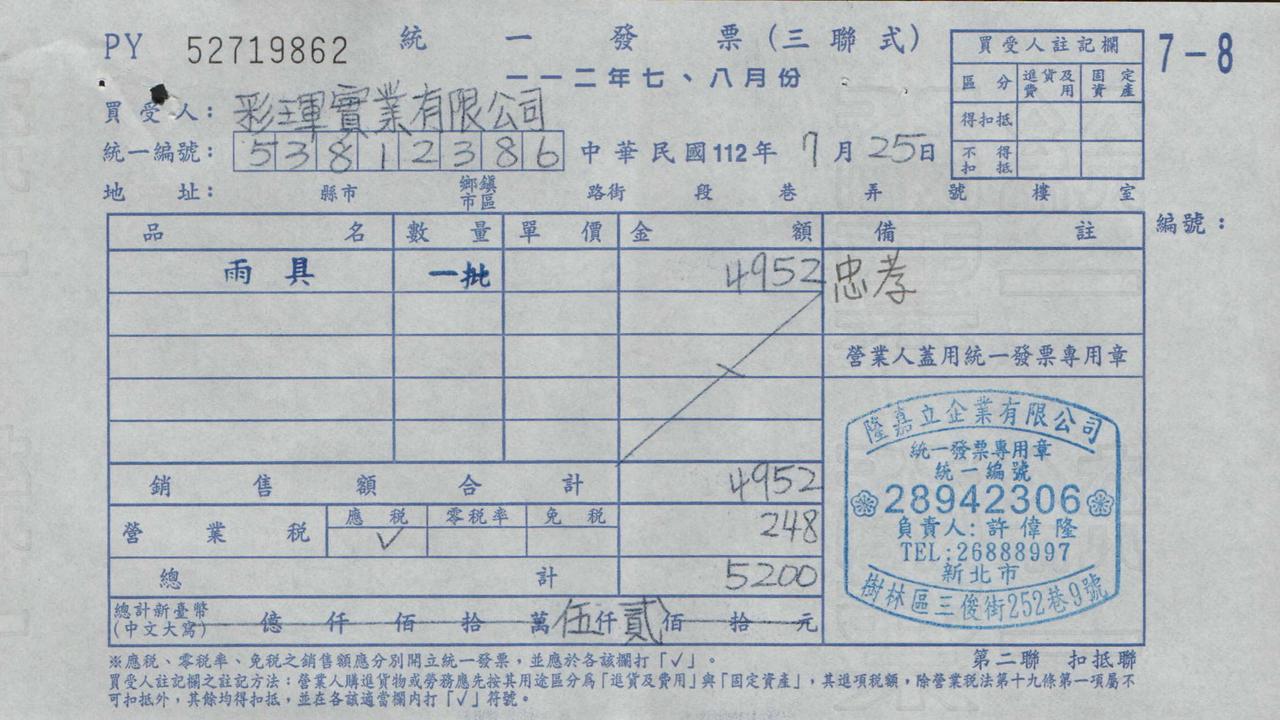 PY 52719862 統一發票(三聯式)
7-8
一一二年七、八月份
買受人註記欄
區分 進貨及費用 固定資產
得扣抵
不得扣抵
買受人: 彩琿實業有限公司
統一編號: 53812386 中華民國112年7月25日
地址: 縣市 鄉鎮市區 路街 段 巷 弄 號 樓 室
編號:
品名 數量 單價 金額 備註
雨具 一批 4952 忠孝
營業人蓋用統一發票專用章
銷售額合計 4952
營業稅 應稅 ✓ 零稅率 免稅 248
總計 5200
總計新臺幣(中文大寫) 億 仟 佰 拾 萬 伍仟 貳佰 拾 元
隆嘉立企業有限公司
統一發票專用章
統一編號
28942306
負責人:許偉隆
TEL:26888997
新北市
樹林區三俊街252巷9號
※應稅、零稅率、免稅之銷售額應分別開立統一發票,並應於各該欄打「✓」。
第二聯 扣抵聯
買受人註記欄之註記方法:營業人購進貨物或勞務應先按其用途區分為「進貨及費用」與「固定資產」,其進項稅額,除營業稅法第十九條第一項屬不
可扣抵外,其餘均得扣抵,並在各該適當欄內打「✓」符號。